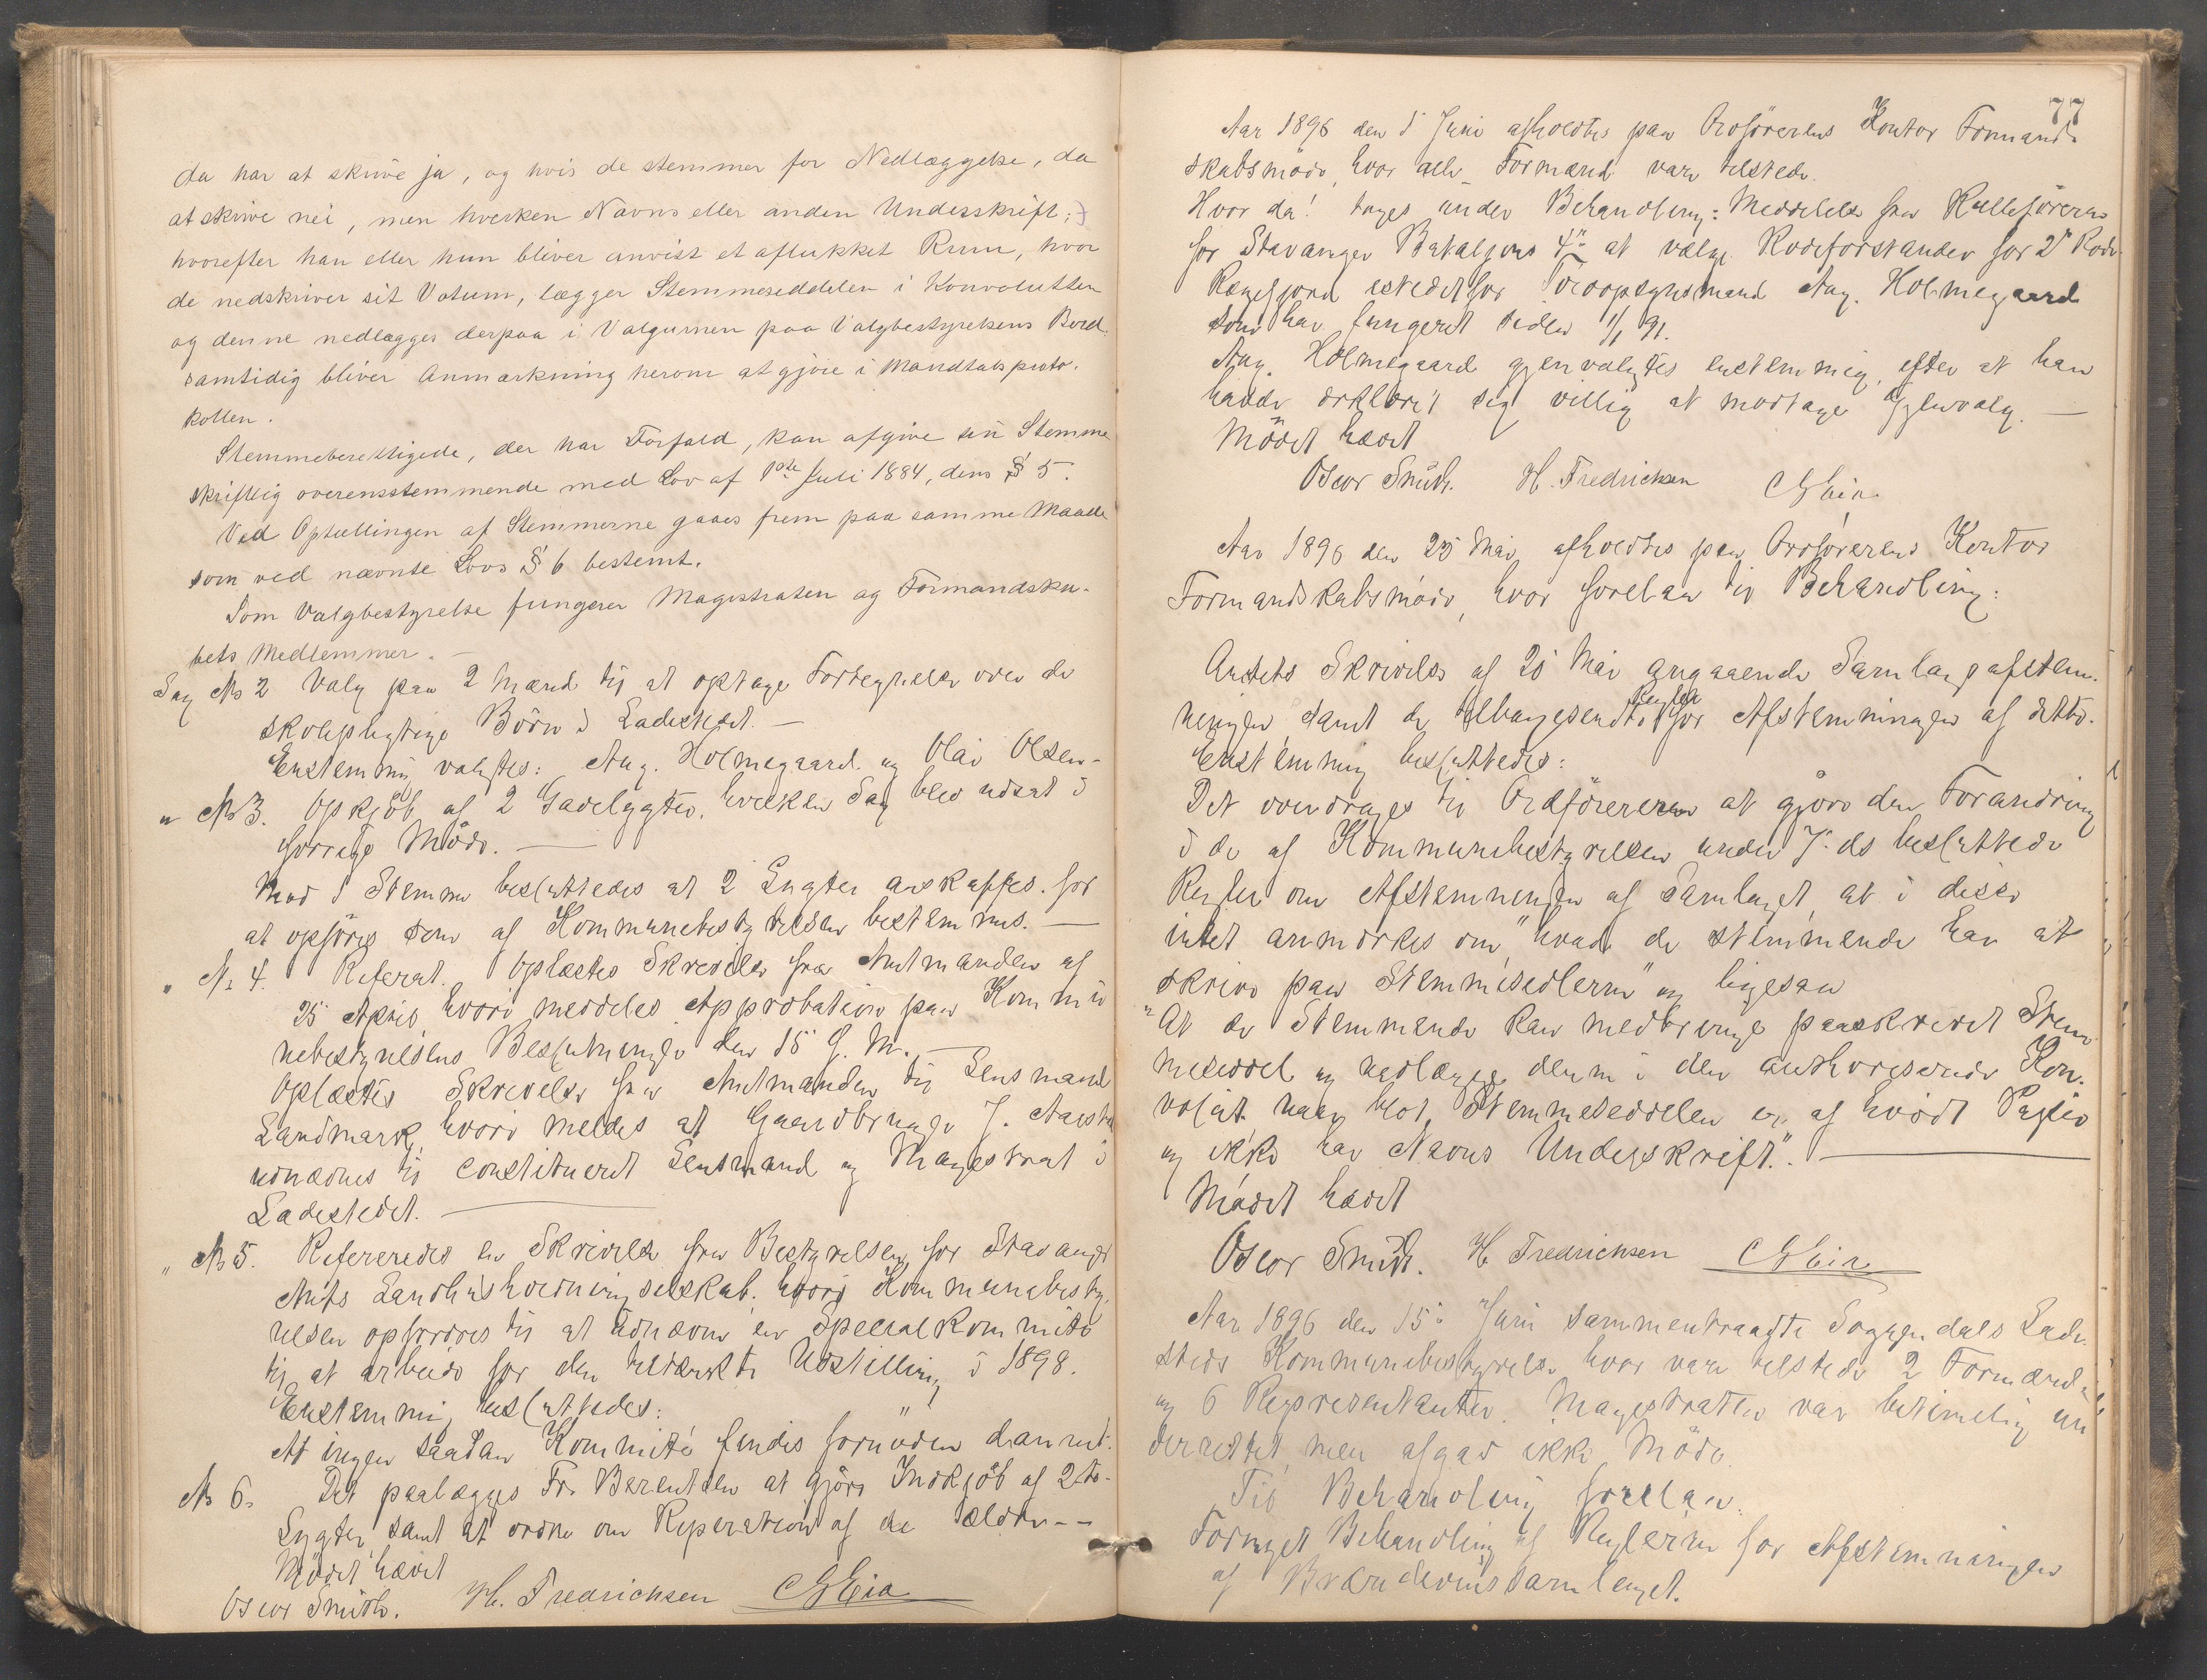 da har at skrive ja, og hvis de stemmer for Nedlæggelse, da
at skrive nei, men hverken Navns eller anden Underskrift;
hvorefter han eller hun bliver anvist et aflukket Rum, hvor
de nedskriver sit Votum, lægger Stemmeseddelen i Konvolutten
og denne nedlægges derpaa i Valgurnen paa Valgbestyrelsens Bord.
samtidig bliver Anmærkning herom at gjøre i Mandtalsproto-
kollen.
Stemmeberettigede, der har Forfald, kan afgive sin Stemme
skriftlig overensstemmende med Lov af 1ste Juli 1884, dens § 5.
Ved Optællingen af Stemmerne gaaes frem paa samme Maade
som ved nævnte Lovs § 6 bestemt.
Som Valgbestyrelse fungerer Magistraten og Formandska-
bets Medlemmer. —
Sag No 2 Valg paa 2 Mænd til at optage Fortegnelse over de
skolepligtige Börn i Ladestedet. —
Enstemmig valgtes: Aug. Holmegaard og Olai Olsen -
" No 3. Opkjöb af 2 Gadelygter, hvilken Sag blev udsat i
forrige Möde. —
Mod 1 Stemme besluttedes at 2 Lygter anskaffes for
at opföres som af Kommunebestyrelsen bestemmes. —
" No 4. Referat. Oplæstes Skrivelse fra Amtmanden af
25 April hvori meddeles Approbation paa Kommu
nebestyrelsens Beslutninger den 15 f. M. —
Oplæstes Skrivelse fra Amtmanden til Lensmand
Landmark, hvori meldes at Gaardbruger J.
udnævnes til constitueret Lensmand og Magistrat i
Ladestedet. —
" No 5. Refereredes en Skrivelse fra Bestyrelsen for Stavanger
Amts Landhusholdningselskab, hvori Kommunebesty-
relsen opfordres til at udnævne en Specialkommite
til at arbeide for den paatænkte Udstilling i 1898.
Enstemmig besluttedes:
At ingen saadan Kommité findes fornöden dannet.
No 6. Det paalægges Fr. Berentsen at gjöre Indkjöb af 2 to
Lygter samt at ordne om Reperation af de ældre --
Mödet hævet
Oscar Smith. H. Fredrichsen C G Eia
77
Aar 1896 den 1 Juni afholdtes paa Ordförerens Kontor Formand-
skabsmöde, hvor alle Formænd vare tilstede.
Hvor da! toges under Behandling: Meddelelse fra Rulleföreren
for Stavanger Bataljons 4de at vælge Rodeforstander for 2den Rode
Rægefjord istedetfor Toldopsynsmand Aug. Holmegaard
som har fungeret siden 1/1 91.
Aug. Holmegaard gjenvalgtes enstemmig, efter at han
havde erklæret sig villig at modtage Gjenvalg. —
Mödet hævet
Oscar Smith. H. Fredrichsen C G Eia.
Aar 1896 den 25 Mai afholdtes paa Ordförerens Kontor
Formandskabsmöde, hvor forelaa til Behandling:
Amtets Skrivelse af 20 Mai angaaende Samlagsafstem-
ningen, samt de tilbagesendte Regler for Afstemningen af dette.
Enstemmig besluttedes:
Det overdrages til Ordföreren at gjöre den Forandring
i de af Kommunebestyrelsen under 7 ds besluttede
Regler om Afstemningen af Samlaget, at i disse
intet anmerkes om "hvad de stemmende har at
skrive paa Stemmesedlerne" og ligesaa
"At de Stemmende kan medbringe paaskrevet Stem
meseddel og nedlægge denne i den authoriserede Kon-
volut, naar blot Stemmeseddelen er af hvidt Papir
og ikke har Navns Underskrift." —
Mödet hævet
Oscar Smith. H Fredrichsen C G Eia
Aar 1896 den 15 Juni sammentraadte Soggendals Lade-
steds Kommunebestyrelse hvor vare tilstede 2 Formænd
og 6 Representanter. Magistraten var betimelig un
derrettet, men afgav ikke Möde.
Til Behandling forelaa.
Fornyet Behandling af Reglerne for Afstemningen
af Brændevinssamlaget.